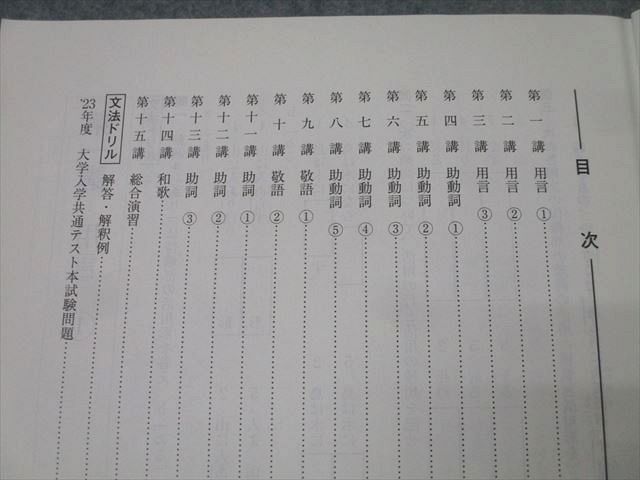 目次
第一講 用言①
第二講 用言②
第三講 用言③
第四講 助動詞①
第五講 助動詞②
第六講 助動詞③
第七講 助動詞④
第八講 助動詞⑤
第九講 敬語①
第十講 敬語②
第十一講 助詞①
第十二講 助詞②
第十三講 助詞③
第十四講 和歌
第十五講 総合演習
文法ドリル 解答・解釈例
'23年度 大学入学共通テスト本試験問題